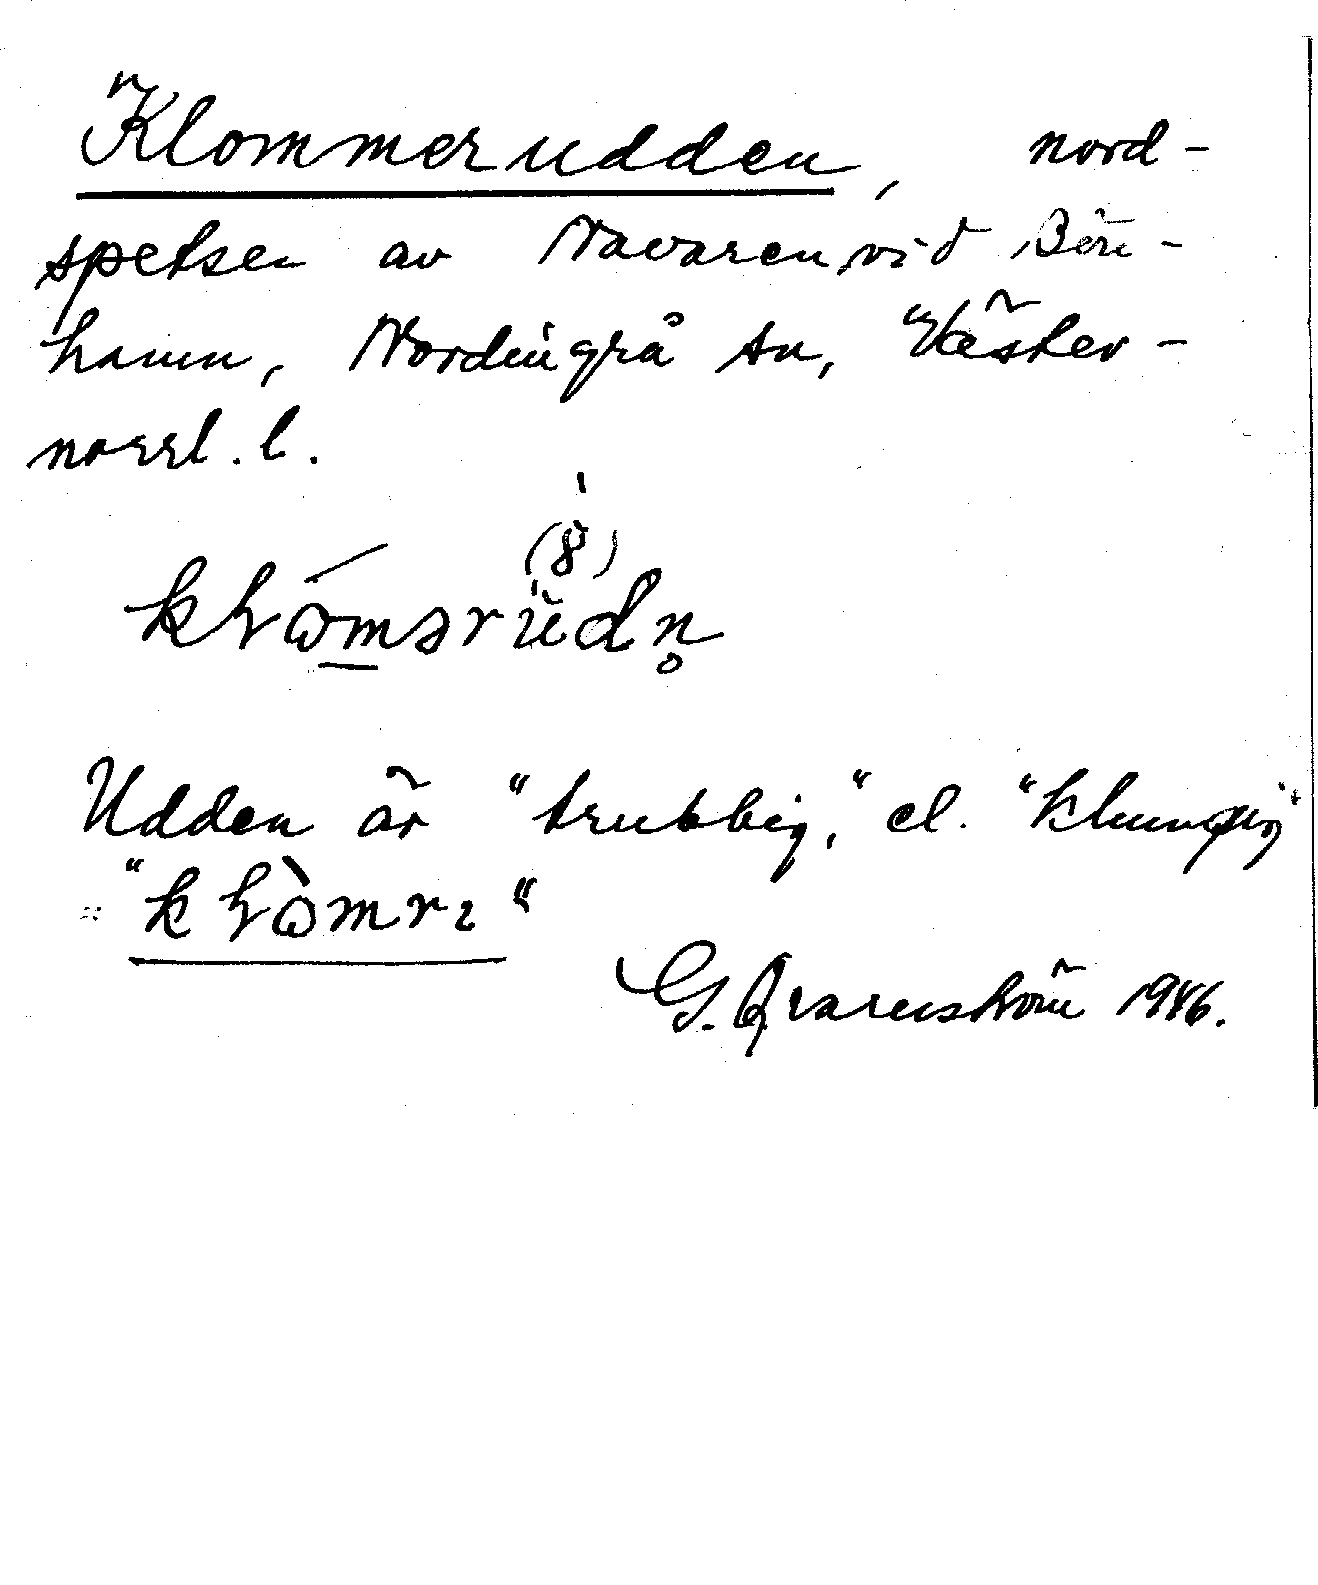 Klommerudden, nord-
spetsen av Navaren vid Bön-
hamn, Nordingrå sn, Väster-
norrl. l.
(8̀)
kɽɷ́mərùdn̥
Udden är "trubbig," el. "klumpig"
= "kɽɷ̀mrɪ"
G. Qvarnström 1946.